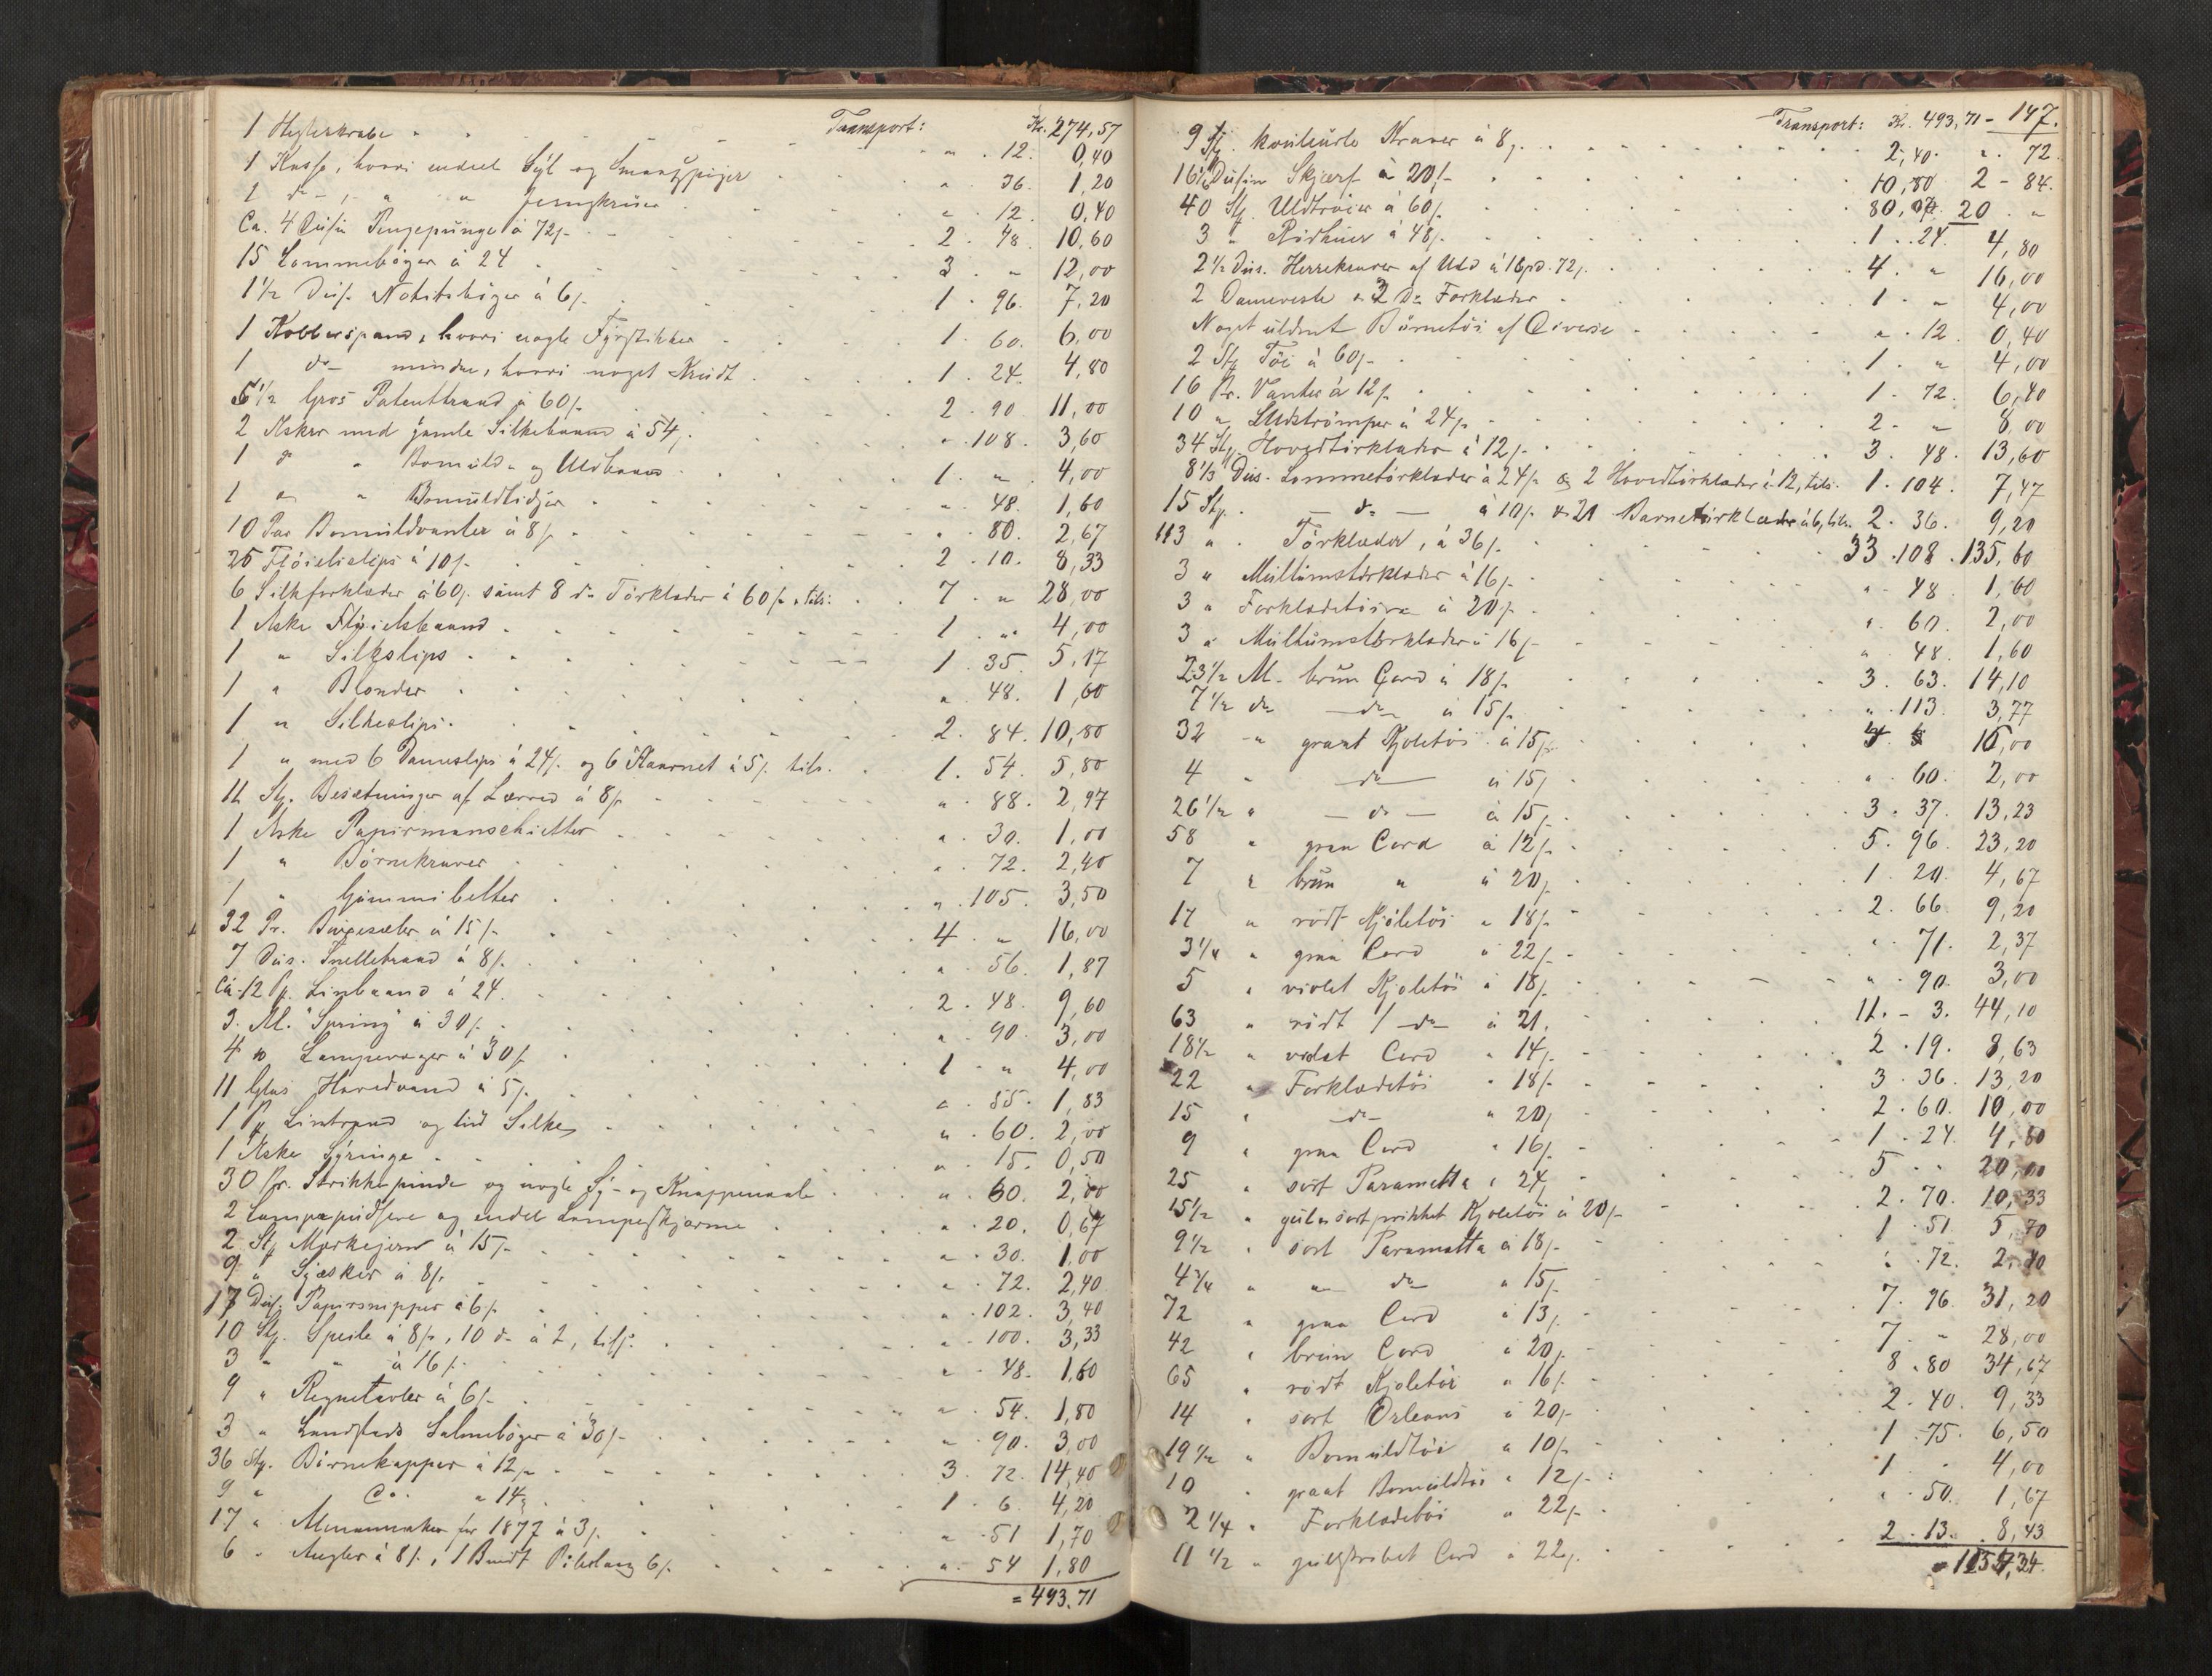 Transport: Kr. 274,57
1 Hesteskrabe " . 12. 0,40
1 Kasse, hvori endeel Syl og Smaaspiger " . 36. 1,20
1 do - , " " Jerngkruer " . 12. 0,40
Ca. 4 Dusin Pengepunge à 72/- 2. 48. 10,60
15 Lommebøger à 24 3. " 12,00
1 1/2 Dus. Notitsbøger à 6/- 1. 96. 7,20
1 Kobberspand, hvori nogle Fyrstikker 1. 60. 6,00
1 do - mindre, hvori noget Krudt 1. 24. 4,80
5 1/2 Gros Patenttraad à 60/- 2. 90 11,00
2 Asker med gamle Silkebaand à 54/- " . 108. 3,60
1 do " Bomulds- og Uldbaand 1. " 4,00
1 " " Bomuldlidser " 48. 1,60
10 Par Bomuldvanter à 8/- " . 80. 2,67
25 Fløielsslips à 10/- 2. 10. 8,33
6 Silkforklæder à 60/- samt 8 do Tørklæder à 60/- tils: 7. " 28,00
1 Aske Fløielsbaand 1. " 4,00
1 " Silkslips 1. 35. 5,17
1 " Blonder " 48. 1,60
1 " Silkeslips 2. 84. 10,80
1 " med 6 Dameslips à 24/- og 6 Haarnet à 5/- tils. 1. 54. 5,80
11 Stk. Besætninger af Lærred à 8/- " . 88. 2,97
1 Aske Papirmanschetter " . 30. 1,00
1 " Børnekraver " . 72. 2,40
1 " Gummibelter " . 105. 3,50
32 Pr. Bingesæler à 15/- 4. " 16,00
7 Dus. Snelletraad à 8/- " . 56. 1,87
Ca. 12 Pk. Linbaand à 24. 2. 48. 9,60
3. Al. "Spring" à 30/- " . 90. 3,00
4 " Lampevæger à 30/- 1. " 4,00
11 Glas Haarvand à 5/- " . 55. 1,83
1 Pk Lintraad og lidt Silke " . 60. 2,00
1 Aske Syringe " . 15. 0,50
30 Pr. Strikkepinde og nogle Sy- og Knappenaale " . 60. 2,00
2 Lampepudsere og endel Lampeskjærme " . 20. 0,67
2. Stk Mærkejern à 15/- " . 30. 1,00
9 " Syæsker à 8/- " . 72. 2,40
17 Dus. Papirsnipper à 6/- " . 102. 3,40
10 Stk. Speile à 8/-, 10 do à 2, tils: " . 100. 3,33
3 " " à 16/- " . 48. 1,60
9 " Regnetavler à 6/- " . 54. 1,80
3 " Landstads Salmebøger à 30/- " . 90. 3,00
36 Stk. Børnekapper à 12/- 3. 72. 14,40
9 " Do. à 14/- 1. 6. 4,20
17 " Almanakker for 1877 à 3/- " . 51 1,70
6 " Angler à 8/-, 1 Bundt 6/- " . 54 1,80
= 493.71
Transport: Kr. 493,71 - 147.
9 Stk. kouleurte Kraver à 8/- 2,40. " . 72.
16 1/6 Dusin Skjærf à 20/- 10,80 2 - 84.
40 Stk. Uldtrøier à 60/- 80,00. 20. "
3 " Rødhuer à 48/- 1. 24. 4,80
2 1/2 Dus. Herrekraver af Uld à 1 Spd. 72/- 4. " 16,00
2 Dameveste & 2 Do Forklæder 1. " 4,00
Noget uldent Børnetøi af Diverse " . 12 0,40
2 Stk Tøi à 60/- 1. " 4,00
16 Pr. Vanter à 12/- 1. 72. 6,40
10 " Uldstrømper à 24/- 2. " 8,00
34 Stk Hovedtørklæder à 12/- 3. 48. 13,60
8 1/3 Dus. Lommetørklæder à 24/- og 2 Hovedtørklæder à 12, tils. 1. 104. 7,47
15 Stk. - do - à 10/- & 21 Barnetørklæder à 6, tils. 2. 36. 9,20
113 " . Tørklæder, à 36/- 33. 108. 135,60
3 " Multumstørklæder à 16/- " . 48. 1,60
3 " Forklædetøier à 20/- " . 60. 2,00
3 " Multumstørklæder à 16/- " . 48. 1,60
23 1/2 Al. brun Card à 18/- 3. 63. 14,10
7 1/2 do - do - à 15/- " . 113. 3,77
32 " graat Kjoletøi à 15/- 4 15,00
4 " do à 15/- " . 60. 2,00
26 1/2 " - do - à 15/- 3. 37. 13,23
58 " graa Card à 12/- 5. 96. 23,20
7 " brun " à 20/- 1. 20. 4,67
17 " rødt Kjoletøi " 18/- 2. 66. 9,20
3 1/4 " graa Card à 22/- " . 71. 2,37
5 " violet Kjoletøi à 18/- " . 90. 3,00
63 " rødt / do - à 21. 11. - 3. 44,10
18 1/2 " violet Card " 14/- 2. 19. 8,63
22 " Forklædetøi " 18/- 3. 36. 13,20
15 " do - " 20/- 2. 60. 10,00
9 " graa Card " 16/- 1. 24. 4,80
25 " sort Paramatta " 24/- 5. " 20,00
15 1/2 " gul & sort prikket Kjoletøi à 20/- 2. 70. 10,33
9 1/2 " sort Paramatta à 18/- 1. 51. 5,70
4 3/4 " " do " 15/- " . 72. 2,40
72 " graa Card à 13/- 7. 96. 31,20
42 " brun Card à 20/- 7. " 28,00
65 " rødt Kjoletøi " 16/- 8. 80 34,67
14 " sort Orleans à 20/- 2. 40. 9,33
19 1/2 " Bomuldtøi à 10/- 1. 75. 6,50
10 " graat Bomuldtøi " 12/- 1 " 4,00
2 1/4 " Forklædetøi " 22/- " . 50. 1,67
11 1/2 " gulstribet Card à 22/- 2. 13. 8,43
= 1157,34.